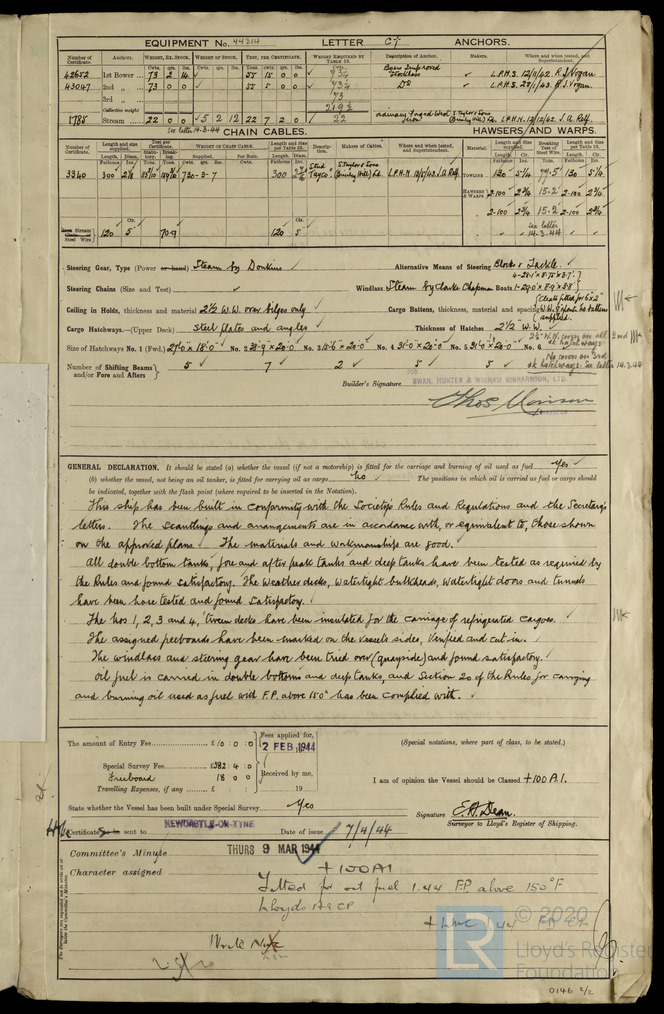 EQUIPMENT No. 44314 LETTER C† ANCHORS.
Number of Certificate. Anchors. WEIGHT, EX. STOCK. WEIGHT OF STOCK. TEST, PER CERTIFICATE. WEIGHT REQUIRED BY TABLE 53. Description of Anchor. Makers. Where and when tested, and Superintendent.
Cwts. qrs. lbs. Cwts. qrs. lbs. Tons. cwts. qrs. lbs.
42652 1st Bower 73 2 14 55 15 0 0 Stockless L.P.H.S. 12/11/42. R.J. Vogan.
43047 2nd " 73 0 0 55 5 0 0 73¼ Do L.P.H.S. 28/1/43. R.J. Vogan.
3rd " 73
Collective weight 219½
1785 Stream 22 0 0 5 2 12 22 7 2 0 22 L.P.H.N. 12/12/42. J.A. Rolf.
See letter 14.3.44
CHAIN CABLES. HAWSERS AND WARPS.
Number of Certificate. Length and size supplied. Test per Certificate. WEIGHT OF CHAIN CABLE. Length and size per Table 53. Description. Makers of Cables. Where and when tested, and Superintendent. Material. Length and size supplied. Breaking Test of Steel Wire. Length and size per Table 53.
3340 300 720-3-7 300 Stud Tayco (Brierley Hill) Ld. L.P.H.N. J.A. Rolf. TOWLINE 120 5¼ 77.5 120 5¼
HAWSERS & WARPS 2·100 2¾ 15.2 2·100 2¾
2·100 2¾ 15.2 2·100 2¾
Stream Steel Wire 120 5 70.9 120 5 see letter 14.3.44
Steering Gear, Type (Power or hand) Steam by Donkins Alternative Means of Steering Blocks & Tackle.
Steering Chains (Size and Test) Windlass Steam by Clarke Chapman Boats
Ceiling in Holds, thickness and material 2½ W.W. over bilges only. Cargo Battens, thickness, material and spacing
(Cleats fitted for 6"x2" W.W. 9" apart no battens supplied.
Cargo Hatchways.—(Upper Deck) Steel plates and angles Thickness of Hatches 2½" W.W.
Size of Hatchways No. 1 (Fwd.) 27'·0 x 18'·0 No. 2 38'·9 x 20'·0 No. 3 13'·6 x 20'·0 No. 4 31'·0 x 20'·0 No. 5 31'·0 x 20'·0 No. 6
Number of Shifting Beams and/or Fore and Afters 5 7 2 5 5
No covers on 2nd dk hatchways. See letter 14.3.44
Builder's Signature
FOR SWAN, HUNTER & WIGHAM RICHARDSON, LTD.
Thos Morison
GENERAL DECLARATION. It should be stated (a) whether the vessel (if not a motorship) is fitted for the carriage and burning of oil used as fuel Yes
(b) whether the vessel, not being an oil tanker, is fitted for carrying oil as cargo No The positions in which oil is carried as fuel or cargo should
be indicated, together with the flash point (where required to be inserted in the Notation).
This ship has been built in conformity with the Societys Rules and Regulations and the Secretarys
letters. The scantlings and arrangements are in accordance with, or equivalent to, those shown
on the approved plans. The materials and workmanship are good.
All double bottom tanks, fore and after peak tanks and deep tanks have been tested as required by
the Rules and found satisfactory. The weather decks, watertight bulkheads, watertight doors and tunnels
have been hose tested and found satisfactory.
The nos 1, 2, 3 and 4, 'tween decks have been insulated for the carriage of refrigerated cargoes.
The assigned freeboards have been marked on the vessels sides, verified and cut in.
The windlass and steering gear have been tried over (quayside) and found satisfactory.
Oil fuel is carried in double bottoms and deep tanks, and Section 20 of the Rules for carrying
and burning oil used as fuel with F.P. above 150° has been complied with.
The amount of Entry Fee £10 : 0 : 0
Special Survey Fee £382 : 4 : 0
Freeboard 18 0 0
Travelling Expenses, if any £ : :
Fees applied for, 2 FEB 1944
Received by me, 19
(Special notations, where part of class, to be stated.)
I am of opinion the Vessel should be Classed +100A1.
State whether the Vessel has been built under Special Survey Yes
Signature E.A. Dean.
Surveyor to Lloyd's Register of Shipping.
Certificate sent to NEWCASTLE-ON-TYNE Date of issue 7/4/44
Committee's Minute THURS 9 MAR 1944
Character assigned +100A1
Fitted for oil fuel 1.44 F.P. above 150°F
Lloyds A & CP
+ LMC 1.44 FD CL
Write Nyk
The Surveyors are requested not to write on or below the Committee's Minutes.
© 2020
LR
Lloyd's Register
Foundation
0146 2/2